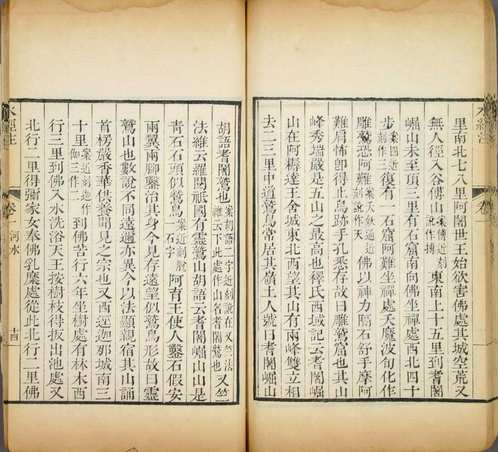 里南北七八里阿闍世王始欲害佛處其城空荒又
無人徑入谷傅山案傅近刻訛作搏東南上十五里到耆闍
崛山未至頂三里有石窟南向佛坐禪處西北四十
步復有一石窟阿難坐禪處天魔波旬化作
雕鷲恐阿難佛以神力隔石舒手摩阿
難肩怖即得止鳥跡手孔悉存故曰雕鷲窟也其山
峰秀端嚴是五山之最高也釋氏西域記云耆闍崛
山在阿耨達王舍城東北西望其山有兩峰雙立相
去二三里中道鷲鳥常居其嶺土人號曰耆闍崛山
胡語耆闍鷲也案胡語二字近刻訛在又竺法維云下此處作山名耆闍鷲也又竺
法維云羅閱祇國有靈鷲山胡語云耆闍崛山山是
青石石頭似鷲鳥案近刻脫一石字阿育王使人鑿石假安
兩翼兩腳鑿治其身今見存遠望似鷲鳥形故曰靈
鷲山也數說不同遠邇亦異今以法顯親宿其山誦
首楞嚴香華供養聞見之宗也又西逕迦那城南三
十里到佛苦行六年坐樹處有林木西
行三里到佛入水洗浴天王按樹枝得扳出池處又
北行二里得彌家女奉佛乳糜處從此北行二里佛
水經注
卷一
河水
十四